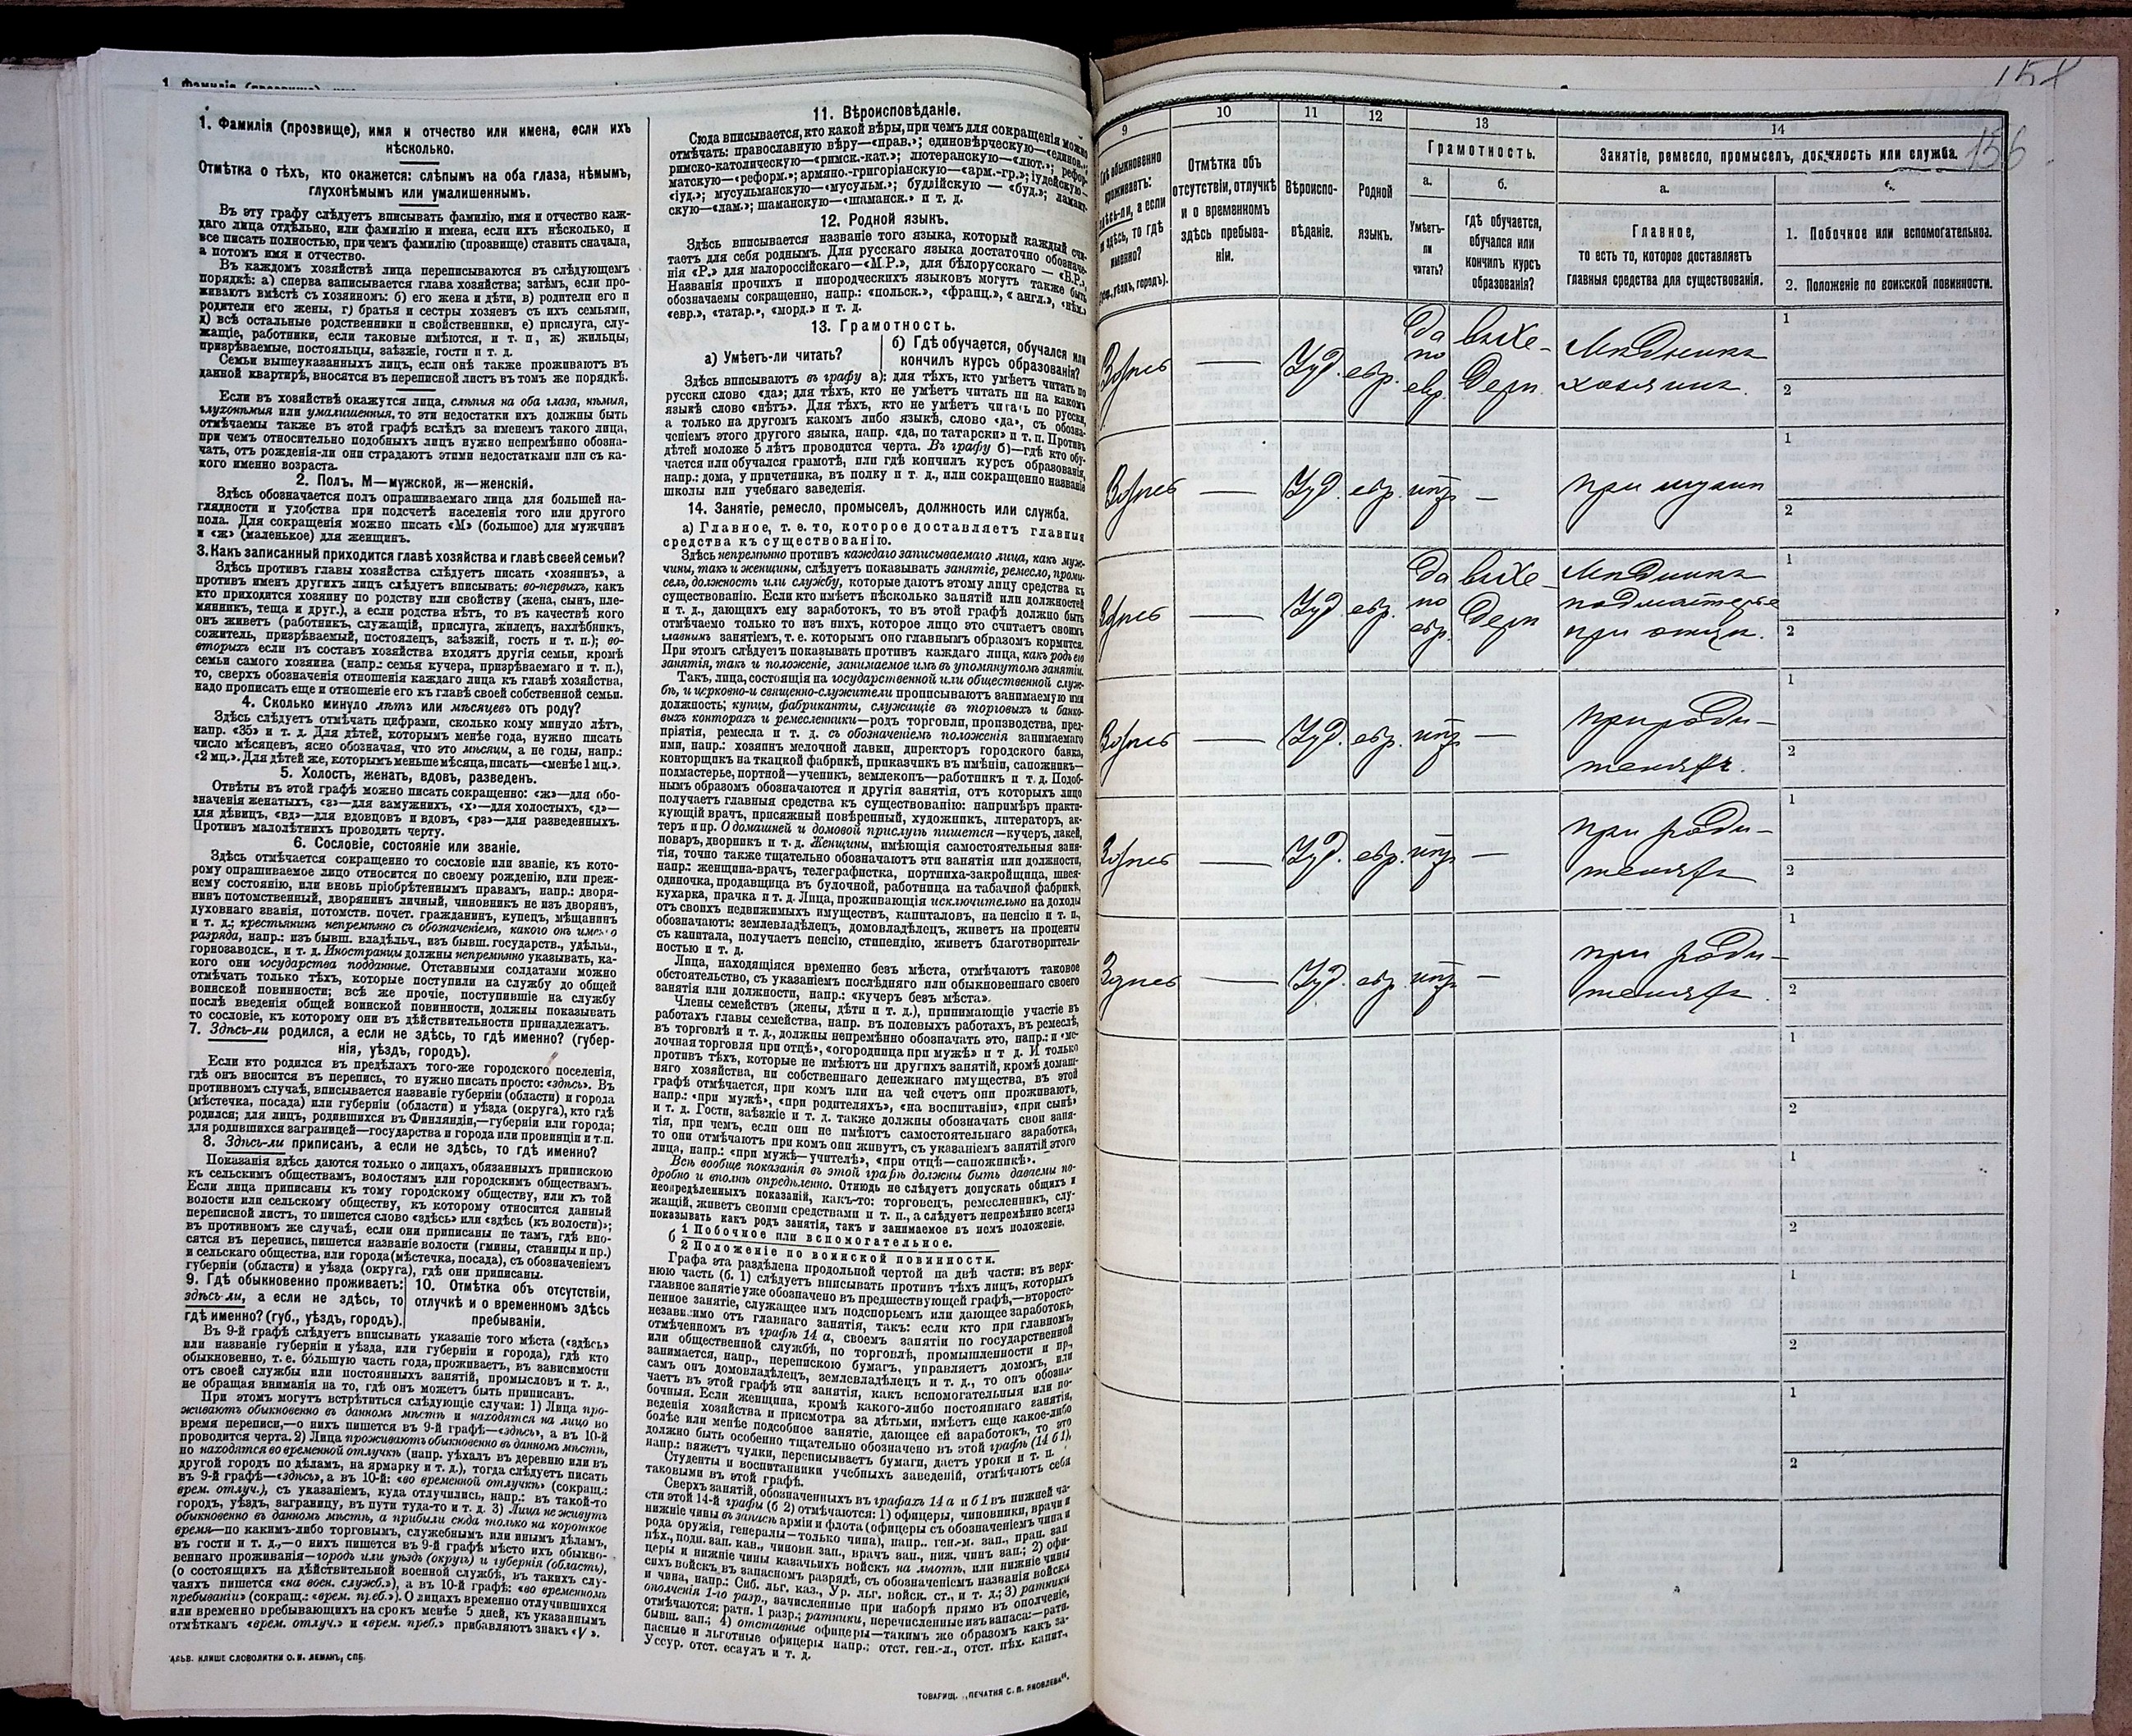 1. Фамилія (прозвище), имя и отчество или имена, если ихъ
нѣсколько.
Отмѣтка о тѣхъ, кто окажется: слѣпымъ на оба глаза, нѣмымъ,
глухонѣмымъ или умалишеннымъ.
Въ эту графу слѣдуетъ вписывать фамилію, имя и отчество каж-
даго лица отдѣльно, или фамилію и имена, если ихъ нѣсколько, и
все писать полностью, при чемъ фамилію (прозвище) ставить сначала,
а потомъ имя и отчество.
Въ каждомъ хозяйствѣ лица переписываются въ слѣдующемъ
порядкѣ: а) сперва записывается глава хозяйства; затѣмъ, если про-
живаютъ вмѣстѣ съ хозяиномъ: б) его жена и дѣти, в) родители его и
родители его жены, г) братья и сестры хозяевъ съ ихъ семьями,
д) всѣ остальные родственники и свойственники, е) прислуга, слу-
жащіе, работники, если таковые имѣются, и т. п, ж) жильцы,
призрѣваемые, постояльцы, заѣзжіе, гости и т. д.
Семьи вышеуказанныхъ лицъ, если онѣ также проживаютъ въ
данной квартирѣ, вносятся въ переписной листъ въ томъ же порядкѣ.
Если въ хозяйствѣ окажутся лица, слѣпыя на оба глаза, нѣмыя,
глухонѣмыя или умалишенныя, то эти недостатки ихъ должны быть
отмѣчаемы также въ этой графѣ вслѣдъ за именемъ такого лица,
при чемъ относительно подобныхъ лицъ нужно непремѣнно обозна-
чать, отъ рожденія-ли они страдаютъ этими недостатками или съ ка-
кого именно возраста.
2. Полъ. М—мужской, ж—женскій.
Здѣсь обозначается полъ опрашиваемаго лица для большей на-
глядности и удобства при подсчетѣ населенія того или другого
пола. Для сокращенія можно писать «М» (большое) для мужчинъ
и «ж» (маленькое) для женщинъ.
3. Какъ записанный приходится главѣ хозяйства и главѣ своей семьи?
Здѣсь противъ главы хозяйства слѣдуетъ писать «хозяинъ», а
противъ именъ другихъ лицъ слѣдуетъ вписывать: во-первыхъ, какъ
кто приходится хозяину по родству или свойству (жена, сынъ, пле-
мянникъ, теща и друг.), а если родства нѣтъ, то въ качествѣ кого
онъ живетъ (работникъ, служащій, прислуга, жилецъ, нахлѣбникъ,
сожитель, призрѣваемый, постоялецъ, заѣзжій, гость и т. п.); во-
вторыхъ если въ составъ хозяйства входятъ другія семьи, кромѣ
семьи самого хозяина (напр.: семья кучера, призрѣваемаго и т. п.),
то, сверхъ обозначенія отношенія каждаго лица къ главѣ хозяйства,
надо прописать еще и отношеніе его къ главѣ своей собственной семьи.
4. Сколько минуло лѣтъ или мѣсяцевъ отъ роду?
Здѣсь слѣдуетъ отмѣчать цифрами, сколько кому минуло лѣтъ,
напр. «35» и т. д. Для дѣтей, которымъ менѣе года, нужно писать
число мѣсяцевъ, ясно обозначая, что это мѣсяцы, а не годы, напр.:
«2 мц.». Для дѣтей же, которымъ меньше мѣсяца, писать—«менѣе 1 мц.».
5. Холостъ, женатъ, вдовъ, разведенъ.
Отвѣты въ этой графѣ можно писать сокращенно: «ж»—для обо-
значенія женатыхъ, «з»—для замужнихъ, «х»—для холостыхъ, «д»—
для дѣвицъ, «вд»—для вдовцовъ и вдовъ, «рз»—для разведенныхъ.
Противъ малолѣтнихъ проводить черту.
6. Сословіе, состояніе или званіе.
Здѣсь отмѣчается сокращенно то сословіе или званіе, къ кото-
рому опрашиваемое лицо относится по своему рожденію, или преж-
нему состоянію, или вновь пріобрѣтеннымъ правамъ, напр.: дворя-
нинъ потомственный, дворянинъ личный, чиновникъ не изъ дворянъ,
духовнаго званія, потомств. почет. гражданинъ, купецъ, мѣщанинъ
и т. д.; крестьянинъ непремѣнно съ обозначеніемъ, какого онъ именно
разряда, напр.: изъ бывш. владѣльч., изъ бывш. государств., удѣльн.,
горнозаводск., и т. д. Иностранцы должны непремѣнно указывать, ка-
кого они государства подданные. Отставными солдатами можно
отмѣчать только тѣхъ, которые поступили на службу до общей
воинской повинности; всѣ же прочіе, поступившіе на службу
послѣ введенія общей воинской повинности, должны показывать
то сословіе, къ которому они въ дѣйствительности принадлежатъ.
7. Здѣсь-ли родился, а если не здѣсь, то гдѣ именно? (губер-
нія, уѣздъ, городъ).
Если кто родился въ предѣлахъ того-же городского поселенія,
гдѣ онъ вносится въ перепись, то нужно писать просто: «здѣсь». Въ
противномъ случаѣ, вписывается названіе губерніи (области) и города
(мѣстечка, посада) или губерніи (области) и уѣзда (округа), кто гдѣ
родился; для лицъ, родившихся въ Финляндіи,—губерніи или города;
для родившихся заграницей—государства и города или провинціи и т.п.
8. Здѣсь-ли приписанъ, а если не здѣсь, то гдѣ именно?
Показанія здѣсь даются только о лицахъ, обязанныхъ припискою
къ сельскимъ обществамъ, волостямъ или городскимъ обществамъ.
Если лица приписаны къ тому городскому обществу, или къ той
волости или сельскому обществу, къ которому относится данный
переписной листъ, то пишется слово «здѣсь» или «здѣсь (къ волости)»;
въ противномъ же случаѣ, если они приписаны не тамъ, гдѣ вно-
сятся въ перепись, пишется названіе волости (гмины, станицы и пр.)
и сельскаго общества, или города (мѣстечка, посада), съ обозначеніемъ
губерніи (области) и уѣзда (округа), гдѣ они приписаны.
9. Гдѣ обыкновенно проживаетъ:
здѣсь-ли, а если не здѣсь, то
гдѣ именно? (губ., уѣздъ, городъ).
10. Отмѣтка объ отсутствіи,
отлучкѣ и о временномъ здѣсь
пребываніи.
Въ 9-й графѣ слѣдуетъ вписывать указаніе того мѣста («здѣсь»
или названіе губерніи и уѣзда, или губерніи и города), гдѣ кто
обыкновенно, т. е. бо́льшую часть года, проживаетъ, въ зависимости
отъ своей службы или постоянныхъ занятій, промысловъ и т. д.,
не обращая вниманія на то, гдѣ онъ можетъ быть приписанъ.
При этомъ могутъ встрѣтиться слѣдующіе случаи: 1) Лица про-
живаютъ обыкновенно въ данномъ мѣстѣ и находятся на лицо во
время переписи,—о нихъ пишется въ 9-й графѣ—«здѣсь», а въ 10-й
проводится черта. 2) Лица проживаютъ обыкновенно въ данномъ мѣстѣ,
но находятся во временной отлучкѣ (напр. уѣхалъ въ деревню или въ
другой городъ по дѣламъ, на ярмарку и т. д.), тогда слѣдуетъ писать
въ 9-й графѣ—«здѣсь», а въ 10-й: «во временной отлучкѣ» (сокращ.:
врем. отлуч.), съ указаніемъ, куда отлучились, напр.: въ такой-то
городъ, уѣздъ, заграницу, въ пути туда-то и т. д. 3) Лица не живутъ
обыкновенно въ данномъ мѣстѣ, а прибыли сюда только на короткое
время—по какимъ-либо торговымъ, служебнымъ или инымъ дѣламъ,
въ гости и т. д.,—о нихъ пишется въ 9-й графѣ мѣсто ихъ обыкно-
веннаго проживанія—городъ или уѣздъ (округъ) и губернія (область),
(о состоящихъ на дѣйствительной военной службѣ, въ такихъ слу-
чаяхъ пишется «на воен. служб.»), а въ 10-й графѣ: «во временномъ
пребываніи» (сокращ.: «врем. преб.»). О лицахъ временно отлучившихся
или временно пребывающихъ на срокъ менѣе 5 дней, къ указаннымъ
отмѣткамъ «врем. отлуч.» и «врем. преб.» прибавляютъ знакъ «V».
КЛИШЕ СЛОВОЛИТНИ О. И. ЛЕМАНЪ, СПБ.
11. Вѣроисповѣданіе.
Сюда вписывается, кто какой вѣры, при чемъ для сокращенія можно
отмѣчать: православную вѣру—«прав.»; единовѣрческую—«единов.»;
римско-католическую—«римск.-кат.»; лютеранскую—«лют.»; рефор-
матскую—«реформ.»; армяно.-григоріанскую—«арм.-гр.»; іудейскую—
«іуд.»; мусульманскую—«мусульм.»; буддійскую — «буд.»; ламаит-
скую—«лам.»; шаманскую—«шаманск.» и т. д.
12. Родной языкъ.
Здѣсь вписывается названіе того языка, который каждый счи-
таетъ для себя роднымъ. Для русскаго языка достаточно обозначе-
нія «Р.» для малороссійскаго—«М.Р.», для бѣлорусскаго — «Б.Р.».
Названія прочихъ и инородческихъ языковъ могутъ также быть
обозначаемы сокращенно, напр.: «польск.», «франц.», «англ.», «нѣм.»
«евр.», «татар.», «морд.» и т. д.
13. Грамотность.
а) Умѣетъ-ли читать?
б) Гдѣ обучается, обучался или
кончилъ курсъ образованія?
Здѣсь вписываютъ въ графу а): для тѣхъ, кто умѣетъ читать по
русски слово «да»; для тѣхъ, кто не умѣетъ читать ни на какомъ
языкѣ слово «нѣтъ». Для тѣхъ, кто не умѣетъ читать по русски,
а только на другомъ какомъ либо языкѣ, слово «да», съ обозна-
ченіемъ этого другого языка, напр. «да, по татарски» и т. п. Противъ
дѣтей моложе 5 лѣтъ проводится черта. Въ графу б)—гдѣ кто обу-
чается или обучался грамотѣ, или гдѣ кончилъ курсъ образованія,
напр.: дома, у причетника, въ полку и т. д., или сокращенно названіе
школы или учебнаго заведенія.
14. Занятіе, ремесло, промыселъ, должность или служба.
а) Главное, т. е. то, которое доставляетъ главныя
средства къ существованію.
Здѣсь непремѣнно противъ каждаго записываемаго лица, какъ муж-
чины, такъ и женщины, слѣдуетъ показывать занятіе, ремесло, промы-
селъ, должность или службу, которые даютъ этому лицу средства къ
существованію. Если кто имѣетъ нѣсколько занятій или должностей
и т. д., дающихъ ему заработокъ, то въ этой графѣ должно быть
отмѣчаемо только то изъ нихъ, которое лицо это считаетъ своимъ
главнымъ занятіемъ, т. е. которымъ оно главнымъ образомъ кормится.
При этомъ слѣдуетъ показывать противъ каждаго лица, какъ родъ его
занятія, такъ и положеніе, занимаемое имъ въ упомянутомъ занятіи.
Такъ, лица, состоящія на государственной или общественной служ-
бѣ, и церковно-и священно-служители прописываютъ занимаемую ими
должность; купцы, фабриканты, служащіе въ торговыхъ и банко-
выхъ конторахъ и ремесленники—родъ торговли, производства, пред-
пріятія, ремесла и т. д. съ обозначеніемъ положенія занимаемаго
ими, напр.: хозяинъ мелочной лавки, директоръ городского банка,
конторщикъ на ткацкой фабрикѣ, приказчикъ въ имѣніи, сапожникъ—
подмастерье, портной—ученикъ, землекопъ—работникъ и т. д. Подоб-
нымъ образомъ обозначаются и другія занятія, отъ которыхъ лицо
получаетъ главныя средства къ существованію: напримѣръ практи-
кующій врачъ, присяжный повѣренный, художникъ, литераторъ, ак-
теръ и пр. О домашней и домовой прислугѣ пишется—кучеръ, лакей,
поваръ, дворникъ и т. д. Женщины, имѣющія самостоятельныя заня-
тія, точно также тщательно обозначаютъ эти занятія или должности,
напр.: женщина-врачъ, телеграфистка, портниха-закройщица, швея-
одиночка, продавщица въ булочной, работница на табачной фабрикѣ,
кухарка, прачка и т. д. Лица, проживающія исключительно на доходы
отъ своихъ недвижимыхъ имуществъ, капиталовъ, на пенсію и т. п.,
обозначаютъ: землевладѣлецъ, домовладѣлецъ, живетъ на проценты
съ капитала, получаетъ пенсію, стипендію, живетъ благотворитель-
ностью и т. д.
Лица, находящіяся временно безъ мѣста, отмѣчаютъ таковое
обстоятельство, съ указаніемъ послѣдняго или обыкновеннаго своего
занятія или должности, напр.: «кучеръ безъ мѣста».
Члены семействъ (жены, дѣти и т. д.), принимающіе участіе въ
работахъ главы семейства, напр. въ полевыхъ работахъ, въ ремеслѣ,
въ торговлѣ и т. д., должны непремѣнно обозначать это, напр.: и «ме-
лочная торговля при отцѣ», «огородница при мужѣ» и т д. И только
противъ тѣхъ, которые не имѣютъ ни другихъ занятій, кромѣ домаш-
няго хозяйства, ни собственнаго денежнаго имущества, въ этой
графѣ отмѣчается, при комъ или на чей счетъ они проживаютъ,
напр.: «при мужѣ», «при родителяхъ», «на воспитаніи», «при сынѣ»
и т. д. Гости, заѣзжіе и т. д. также должны обозначать свои заня-
тія, при чемъ, если они не имѣютъ самостоятельнаго заработка,
то они отмѣчаютъ при комъ они живутъ, съ указаніемъ занятій этого
лица, напр.: «при мужѣ—учителѣ», «при отцѣ—сапожникѣ».
Всѣ вообще показанія въ этой графѣ должны быть даваемы по-
дробно и вполнѣ опредѣленно. Отнюдь не слѣдуетъ допускать общихъ и
неопредѣленныхъ показаній, какъ-то: торговецъ, ремесленникъ, слу-
жащій, живетъ своими средствами и т. п., а слѣдуетъ непремѣнно всегда
показывать какъ родъ занятія, такъ и занимаемое въ немъ положеніе.
б 1 Побочное или вспомогательное.
2 Положеніе по воинской повинности.
Графа эта раздѣлена продольной чертой на двѣ части: въ верх-
нюю часть (б. 1) слѣдуетъ вписывать противъ тѣхъ лицъ, которыхъ
главное занятіе уже обозначено въ предшествующей графѣ,—второсте-
пенное занятіе, служащее имъ подспорьемъ или дающее заработокъ,
независимо отъ главнаго занятія, такъ: если кто при главномъ,
отмѣченномъ въ графѣ 14 а, своемъ занятіи по государственной
или общественной службѣ, по торговлѣ, промышленности и пр.,
занимается, напр., перепискою бумагъ, управляетъ домомъ, или
самъ онъ домовладѣлецъ, землевладѣлецъ и т. д., то онъ обозна-
чаетъ въ этой графѣ эти занятія, какъ вспомогательныя или по-
бочныя. Если женщина, кромѣ какого-либо постояннаго занятія,
веденія хозяйства и присмотра за дѣтьми, имѣетъ еще какое-либо
болѣе или менѣе подсобное занятіе, дающее ей заработокъ, то это
должно быть особенно тщательно обозначено въ этой графѣ (14 б 1),
напр.: вяжетъ чулки, переписываетъ бумаги, даетъ уроки и т. п.
Студенты и воспитанники учебныхъ заведеній, отмѣчаютъ себя
таковыми въ этой графѣ.
Сверхъ занятій, обозначенныхъ въ графахъ 14 а и б 1 въ нижней ча-
сти этой 14-й графы (б 2) отмѣчаются: 1) офицеры, чиновники, врачи и
нижніе чины въ запасѣ арміи и флота (офицеры съ обозначеніемъ чина и
рода оружія, генералы—только чина), напр. ген.-м. зап., прап. зап
пѣх., подп. зап. кав., чиновн. зап., врачъ зап., ниж. чинъ зап.; 2) офи-
церы и нижніе чины казачьихъ войскъ на льготѣ, или нижніе чины
сихъ войскъ въ запасномъ разрядѣ, съ обозначеніемъ названія войска
и чина, напр.: Сиб. льг. каз., Ур. льг. войск. ст., и т. д.; 3) ратники
ополченія 1-го разр., зачисленные при наборѣ прямо въ ополченіе,
отмѣчаются: ратн. 1 разр.; ратники, перечисленные изъ запаса:—ратн.
бывш. зап.; 4) отставные офицеры—такимъ же образомъ какъ за-
пасные и льготные офицеры напр.: отст. ген.-л., отст. пѣх. капит.,
Уссур. отст. есаулъ и т. д.
ТОВАРИЩ. „ПЕЧАТНЯ С. П. ЯКОВЛЕВА“.
156
9 10 11 12 13 14
Гдѣ обыкновенно
проживаетъ:
здѣсь-ли, а если
не здѣсь, то гдѣ
именно?
(губ., уѣздъ, городъ).
Отмѣтка объ
отсутствіи, отлучкѣ
и о временномъ
здѣсь пребыва-
ніи.
Вѣроиспо-
вѣданіе.
Родной
языкъ.
Грамотность.
а.
Умѣетъ-
ли
читать?
б.
гдѣ обучается,
обучался или
кончилъ курсъ
образованія?
Занятіе, ремесло, промыселъ, должность или служба.
а.
Главное,
то есть то, которое доставляетъ
главныя средства для существованія.
1. Побочное или вспомогательное.
2. Положеніе по воинской повинности.
Здѣсь — Іуд. евр. да по евр. въ хе-дерѣ. Мѣдникъ хозяинъ. 1 2
Здѣсь — Іуд. евр. нѣтъ — при мужѣ 1 2
Здѣсь — Іуд. евр. да по евр. въ хе-дерѣ Мѣдникъ подмастерье при отцѣ. 1 2
Здѣсь — Іуд. евр. нѣтъ — при роди-теляхъ. 1 2
Здѣсь — Іуд. евр. нѣтъ — при роди-теляхъ 1 2
Здѣсь — Іуд. евр. нѣтъ — при роди-теляхъ. 1 2
1
2
1
2
1
2
1
2